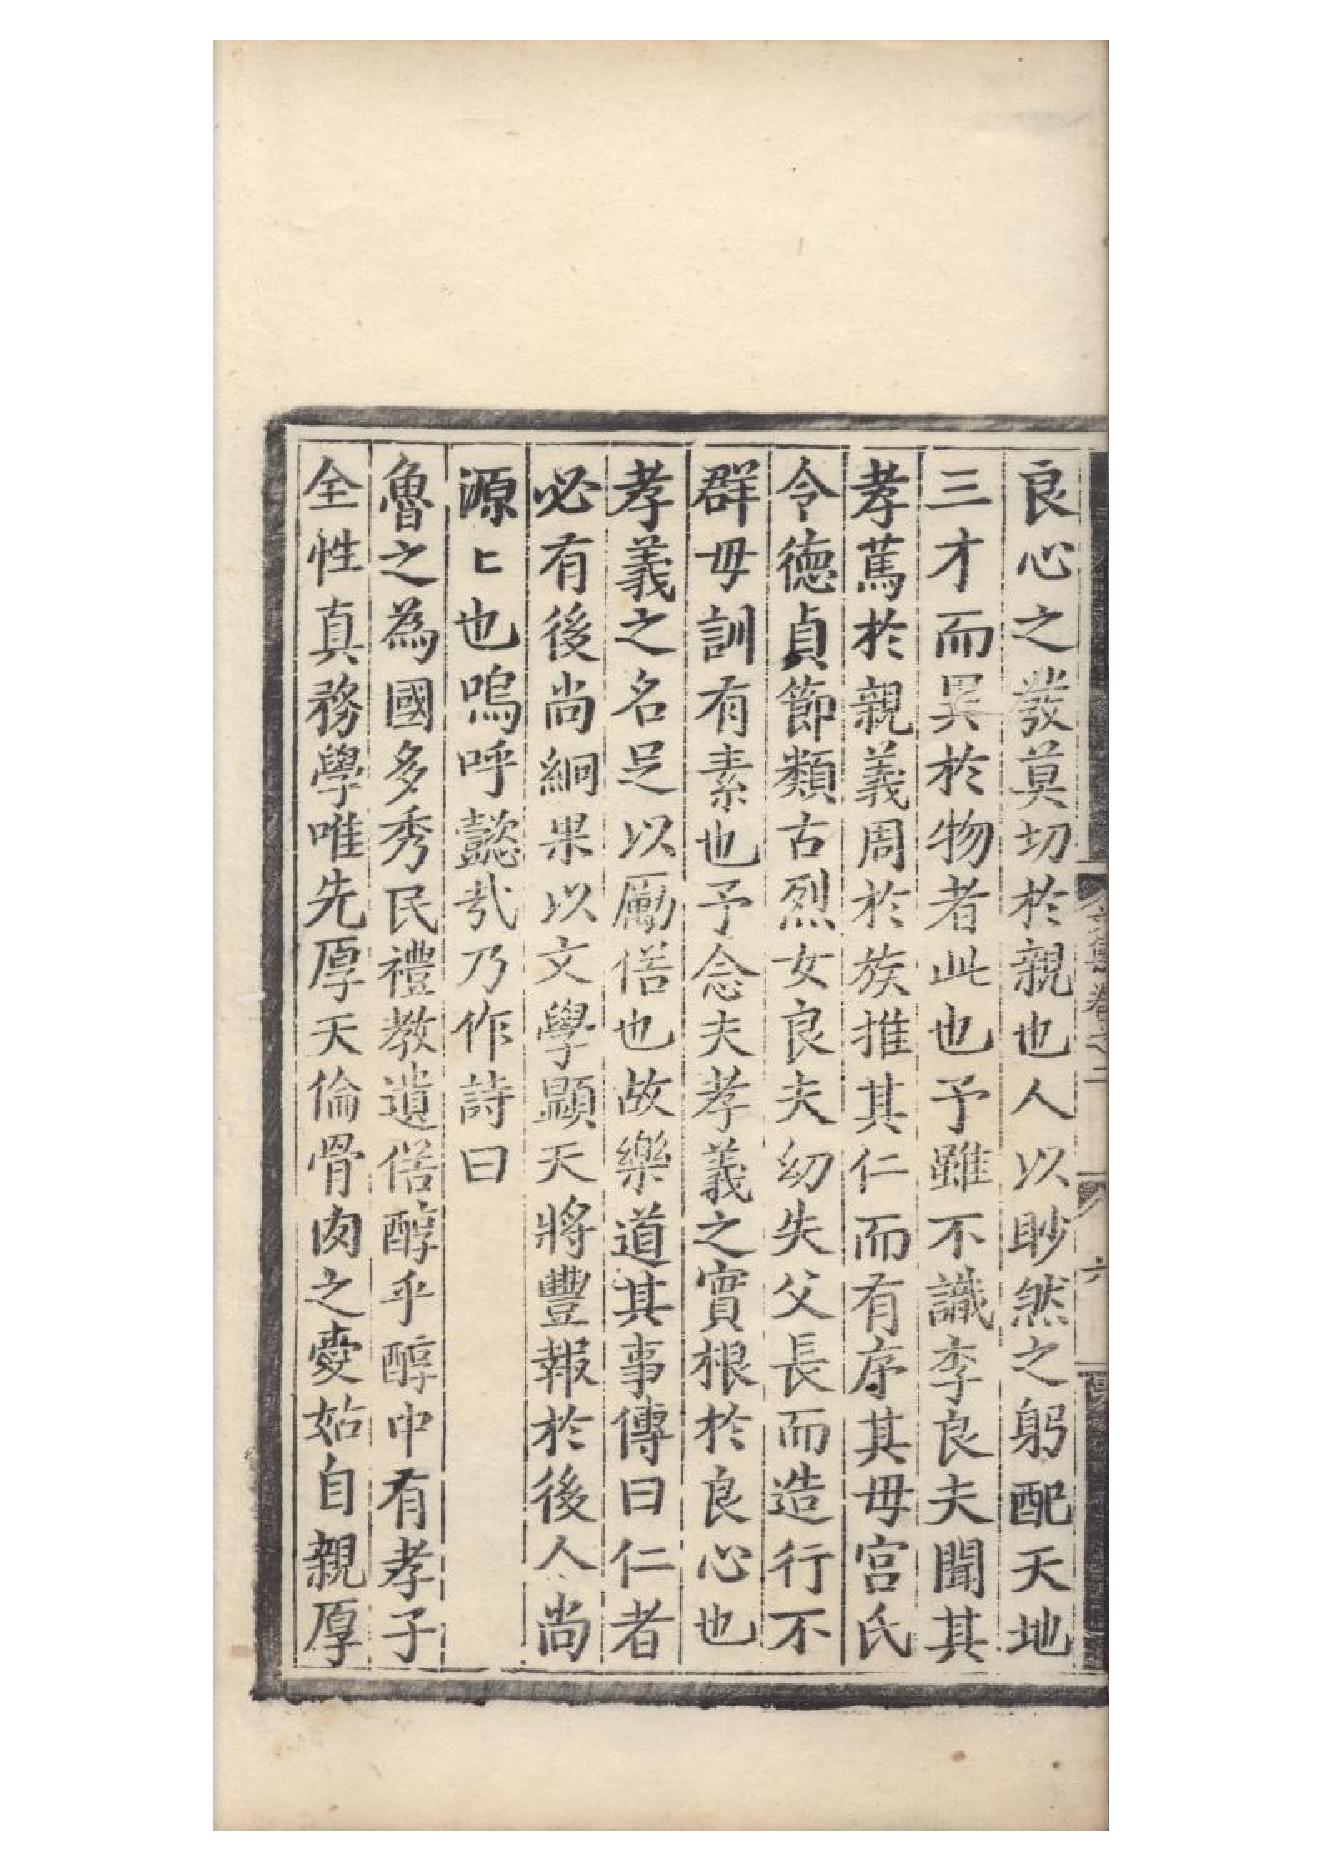 良心之發莫切於親也人以眇然之躬配天地
三才而異於物者此也予雖不識李良夫聞其
孝蔫於親義周於族推其仁而有序其毋宫氏
令德貞節類古烈女良夫幼失父長而造行不
群毋訓有素也予念夫孝義之實根於良心也
孝義之名足以厲俗也故樂道其事傳曰仁者
必有後尚絅果以文學顯天將豐報於後人尚
源〻也嗚呼懿㢤乃作詩曰
魯之為國多秀民禮教遺俗醇乎醇中有孝子
全性真務學唯先厚天倫骨肉之愛始自親厚
卷之二
六